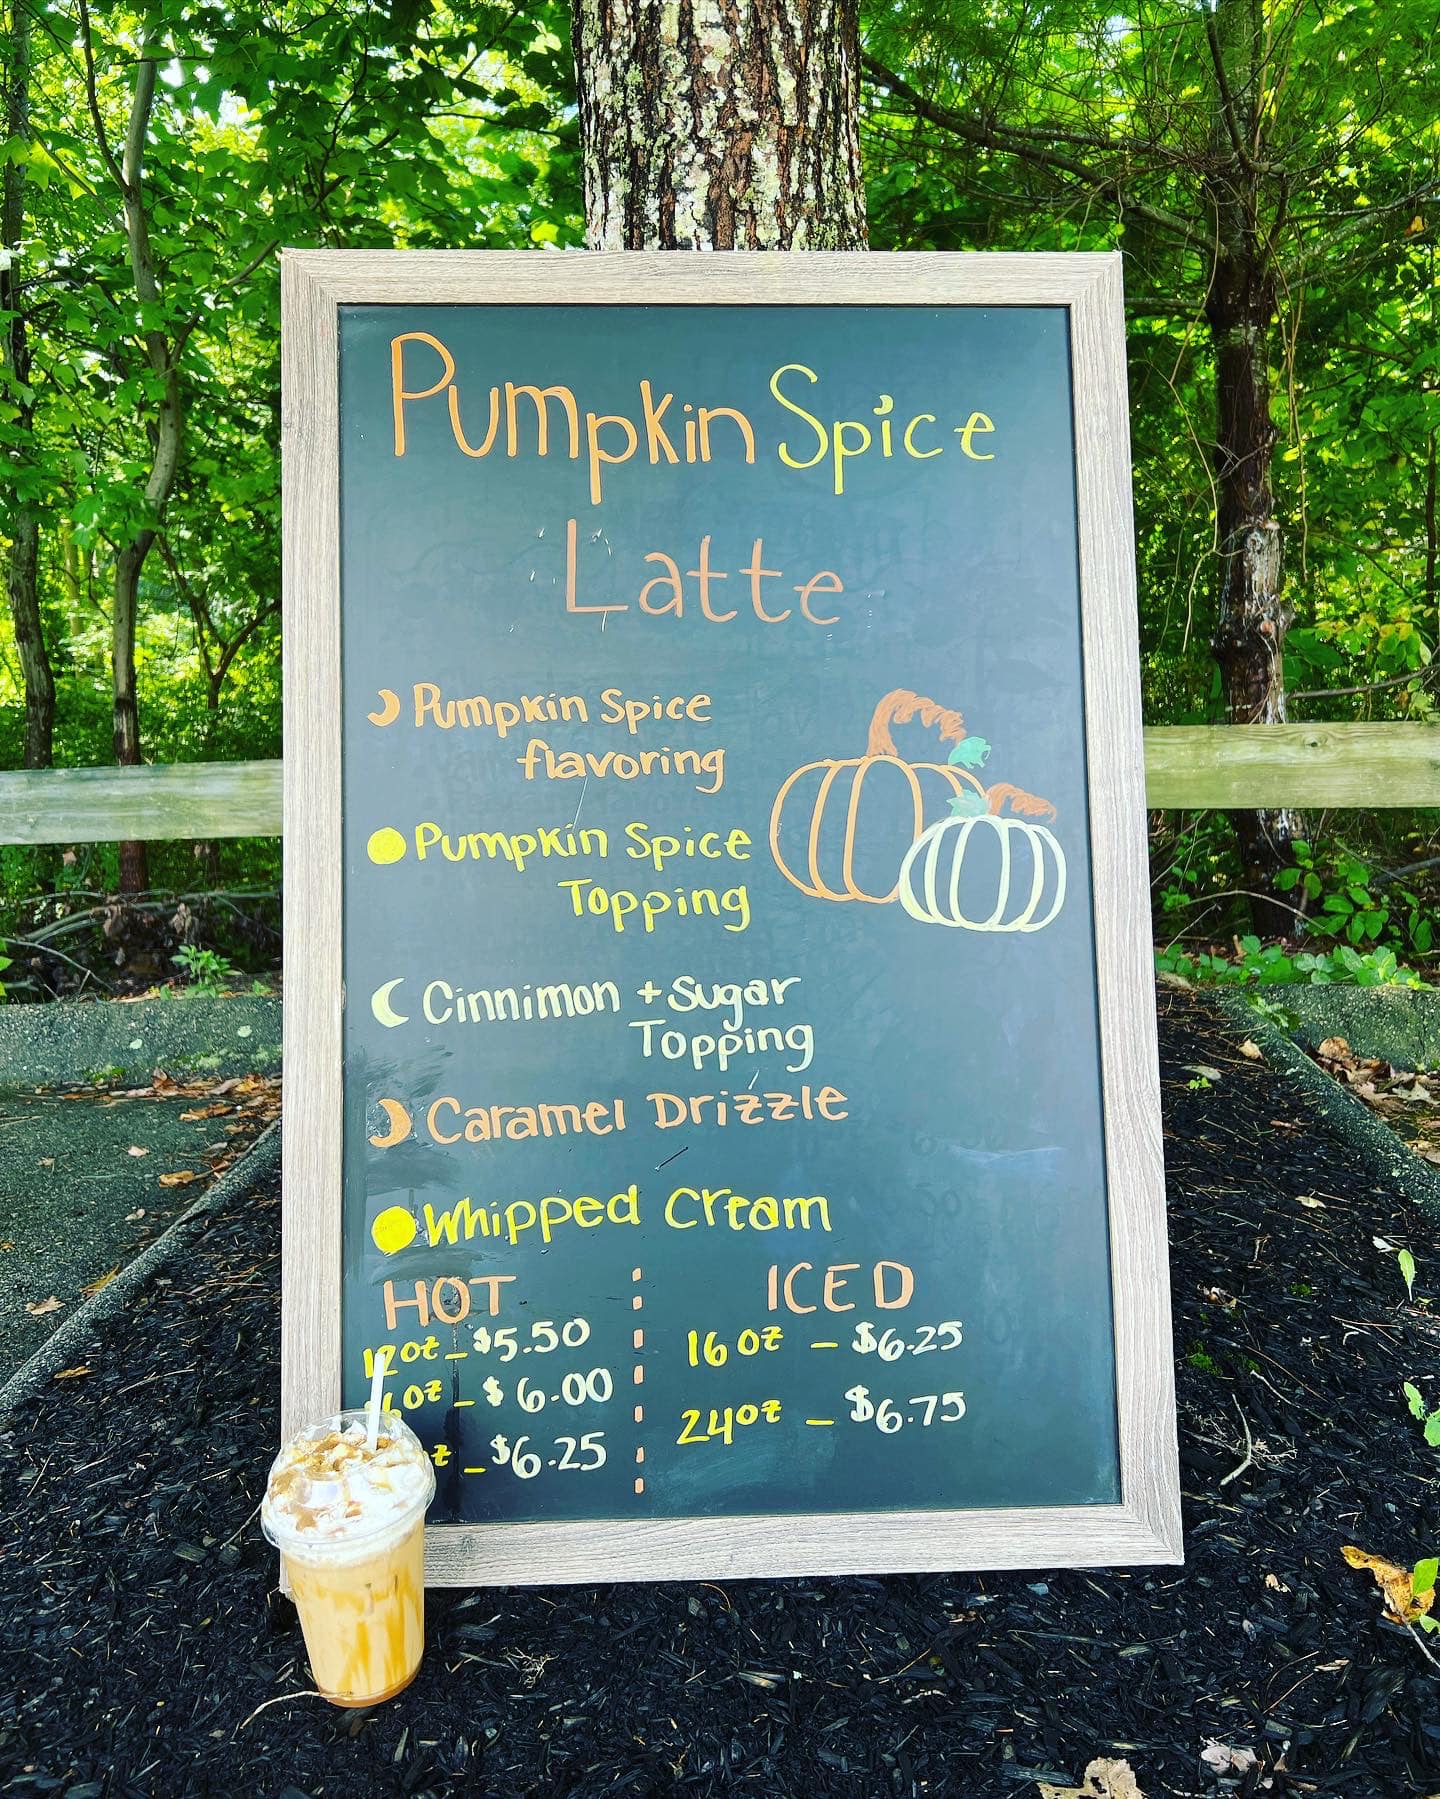 Pumpkin Spice
Latte
Pumpkin Spice
flavoring
Pumpkin Spice
Topping
Cinnimon + Sugar
Topping
Caramel Drizzle
Whipped Cream
HOT
ICED
12oz - $5.50
16oz - $6.25
- $6.00
24oz - $6.75
- $6.25